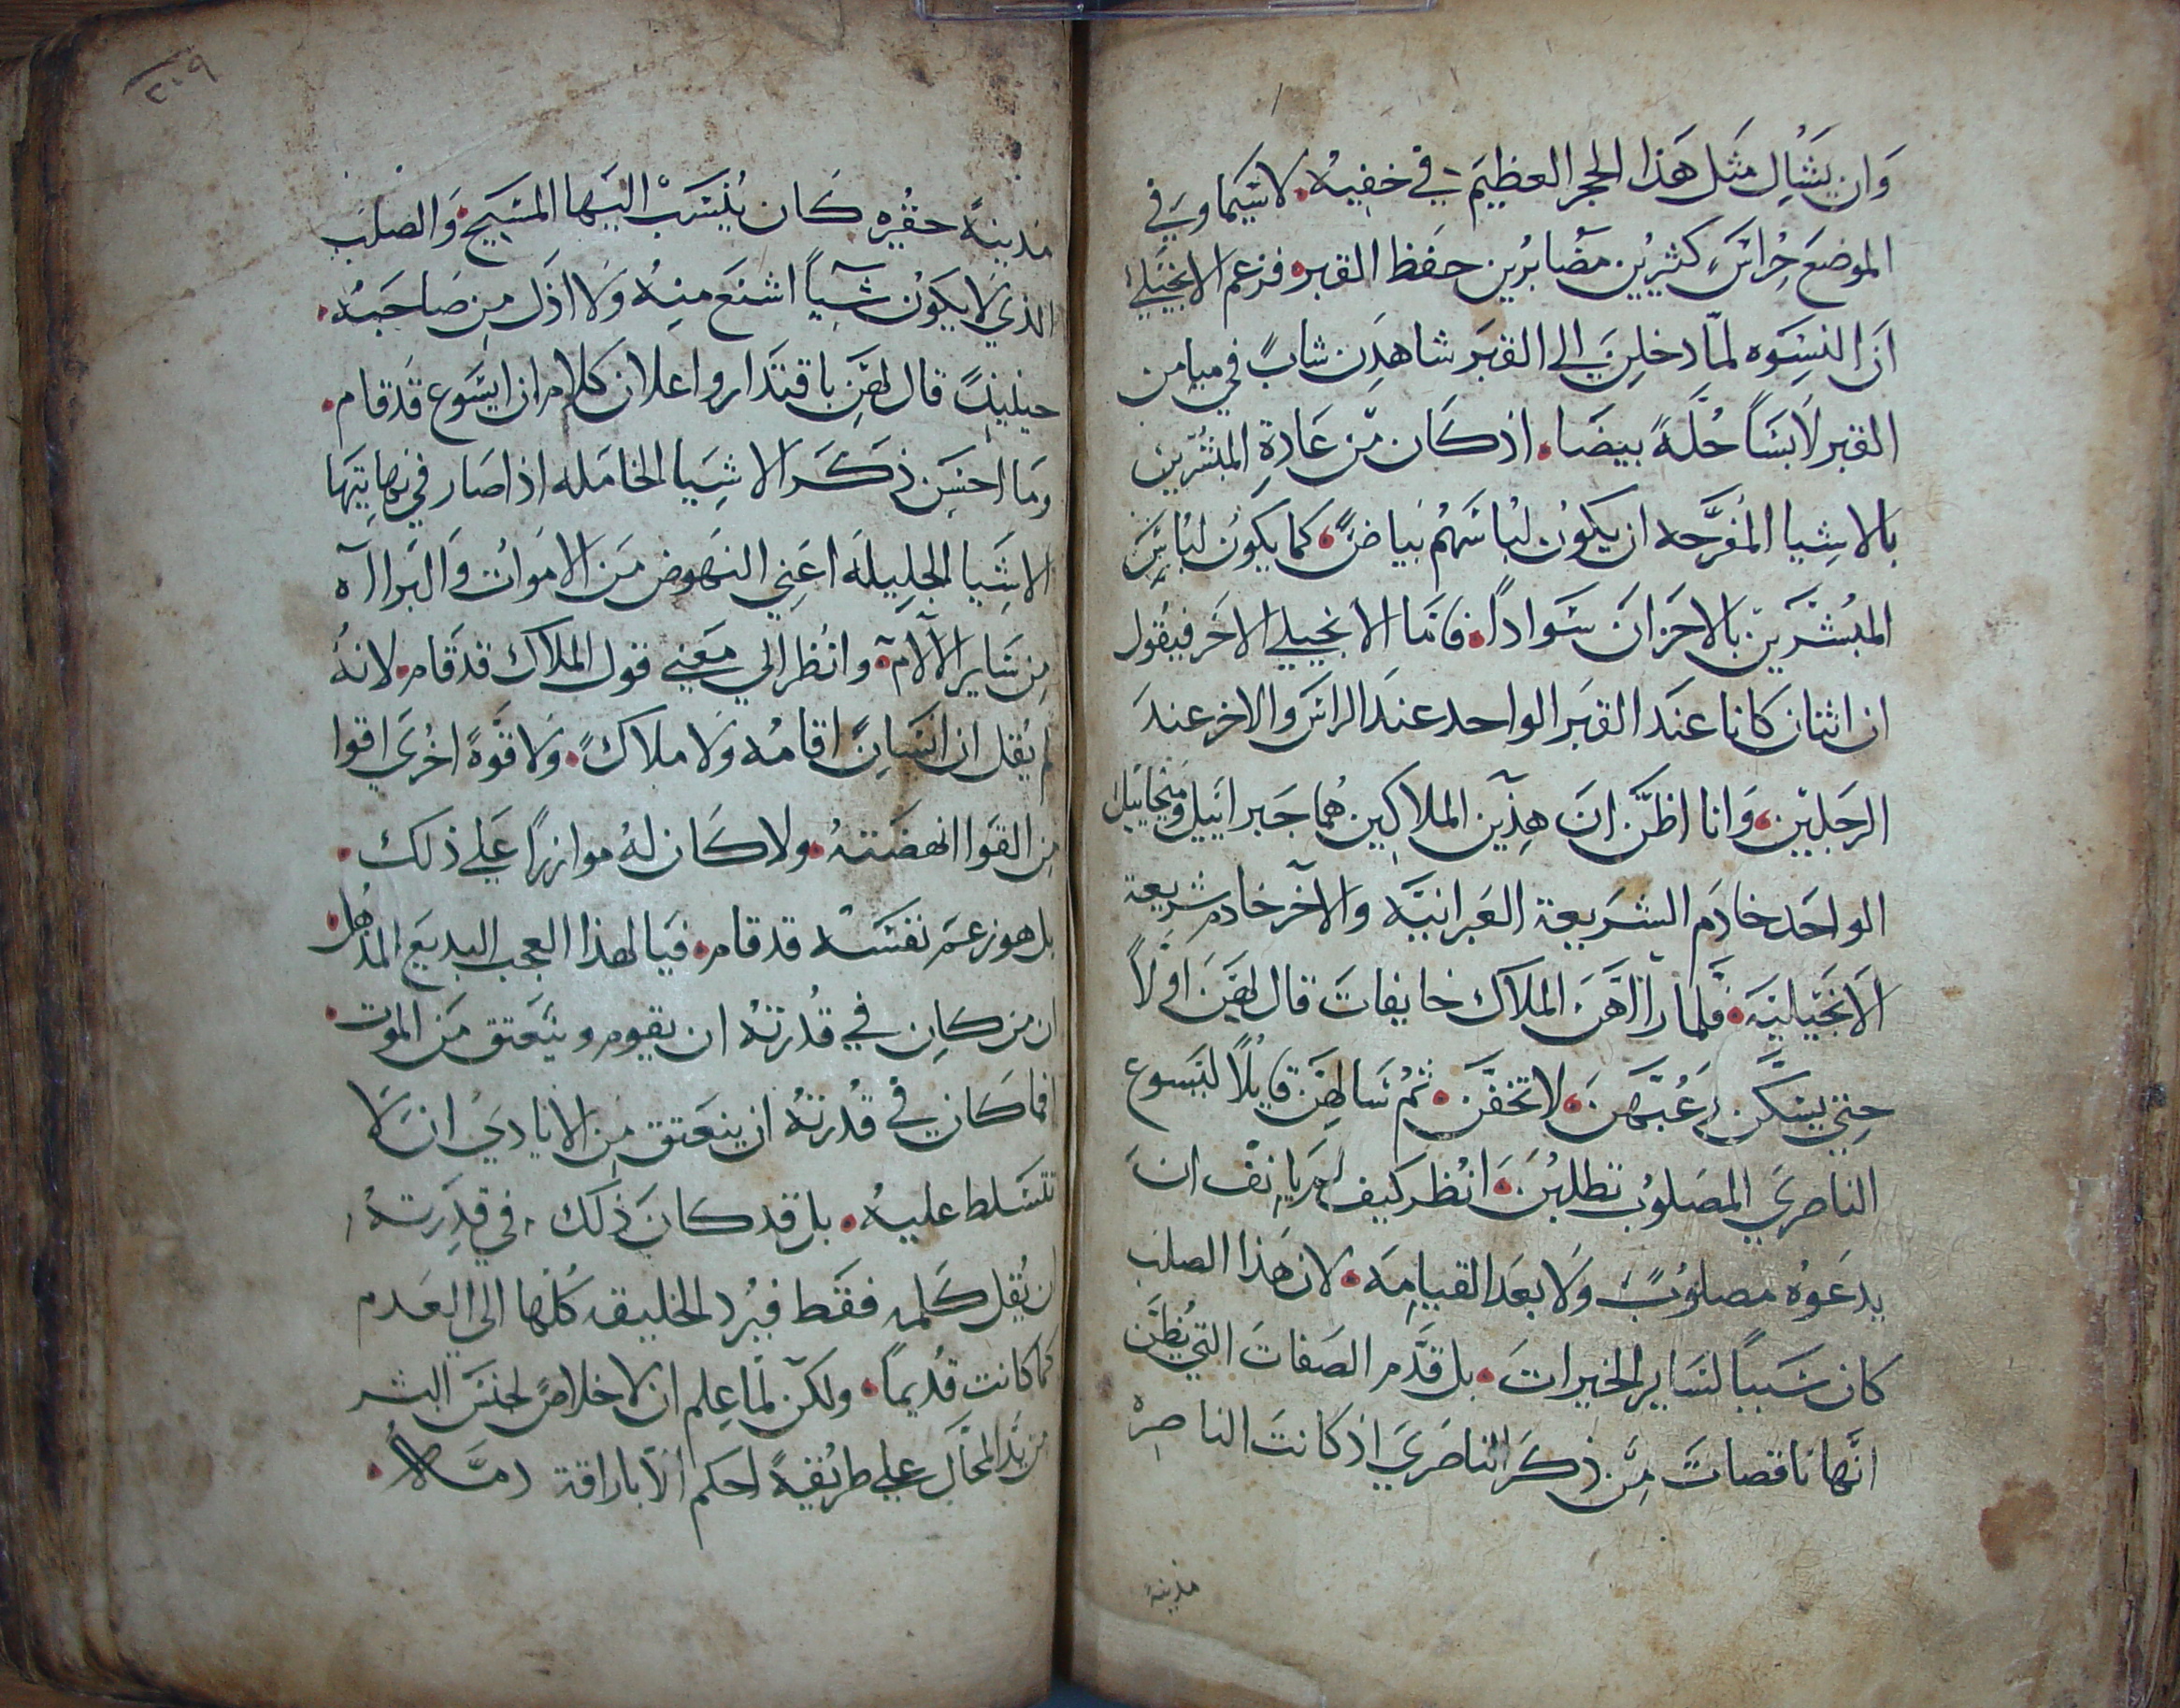 وَان يشَال مثَل هَذا الحجر العظيمَ في خفيهْ. لاسَيَّما وَفي
الموضعَ حُرَّاسَ كثيرْين مصَابرُين حفظ القبر. فزعم الانجيلي
ان النسَوه لما دخلن الي القبر شاهدن شابً في ميامن
القبر لابسَاً حُلَّةً بيضَا. اذ كان من عَادةِ المبُشرّين
بالاشيا المُفرَّحه ان يكونُ لبُاسَهُم بيَاضً. كما يكونُ لبُاسَ
المبُشرَين بالاحزان سَوادًا. فامَا الانجيلي الاخر فيقُول
ان اثنان كانا عندَ القبر الواحد عند الراسَ والاخر عندَ
الرجلين. وَانا اظن ان هذين الملاكين هُما جبراييل وميخاييل
الواحَد خادَم الشرَيعة العَبرانيَّه والآخر خادم شريعة
الانجيليَّة. فلما راَاهنَ الملاك خايفات قال لهنَ اوَّلاً
حتي يسَكَّن رعُبَهن. لا تخفنَ. ثمُ سَالهَن قايلاً ليَسوع
الناصري المصَلوُب تطلبُنَ. انْظر كيف لم يانف انَ
يدعَوهُ مصلوُبً وَلا بعَد القيامه. لان هَذا الصلب
كان سَببًا لسَاير الخيرات. بل قدَّم الصَفات التي يُظن
انَّها ناقصات مِن ذكرَ الناصَري اذ كانت الناصِرهْ
مدينة
٢٠٩
مَدينةً حقيره كان يُنسَبْ اليها المسَيح. وَالصلبَ
الذي لا يكوَنُ شياً اشنَع منهُ وَلا اذل من صَاحبهُ.
حينيذً قال لهن باقتدار واعلان كلام ان ايسَوع قدَ قام.
ومَا احسَن ذكرَ الاشيَا الخامله اذا صَار في نهايتها
الاشيا الجليله اعني النهوض منَ الاموات وَالبراآه
مِن سَاير الآلام. وانظر الي معَني قول الملاك قد قام. لانهُ
لم يُقل ان انسَانً اقامهُ وَلا ملاكً. وَلا قوَّةً اخرُي اقوا
من القوا انهضَتهُ. ولا كَان لهُ موازرًا عَلي ذلك.
بل هو زعم نفسَهْ قد قام. فيَا لهذا العجب البديعَ المذهل.
ان من كان في قُدرتهُ ان يقوم وينعَتق منَ الموت.
افما كان في قُدرتهُ ان ينعَتق مِن الايادي ان لا
تتسَلط عليهُ. بل قد كان ذلك في قدِرتهُ
ان يُقل كلمه فقط فيُرد الخليقه كُلها الي العَدم
كما كانت قديماً. ولكن لما عِلم ان لا خلاصً لجنسَ البشر
من يَد المحَال علي طريُقيةً احكم الا باراقة دمَه الا.